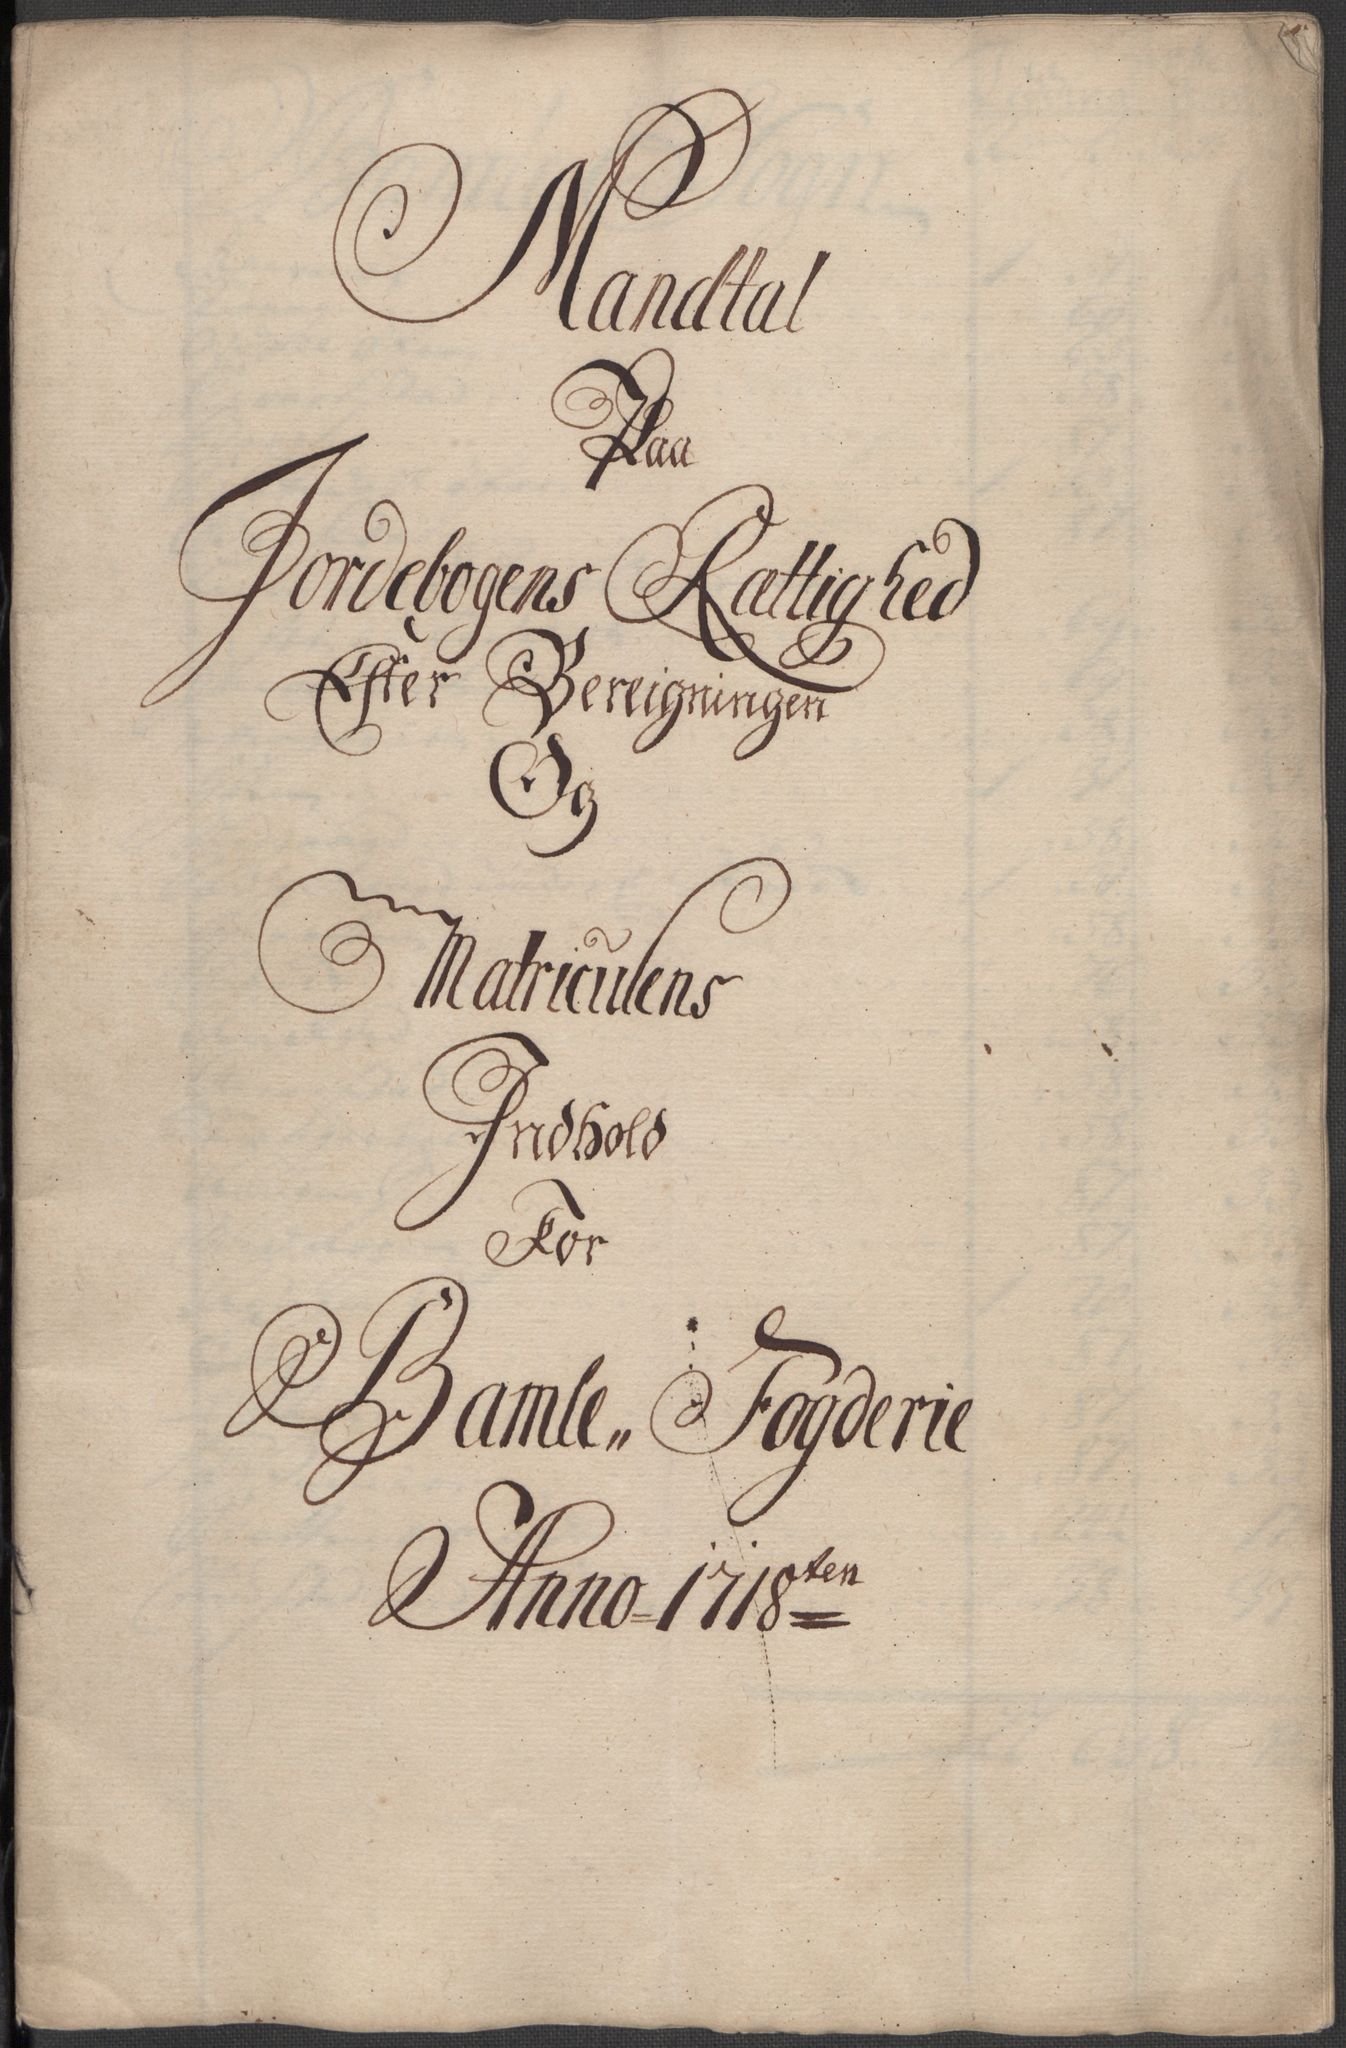 Mandtal
Paa
Jordebogens Rættighed
Efter Bereigningen
Og
Matriculens
Indhold
For
Bamle„ Fogderie
Anno = 1718ten